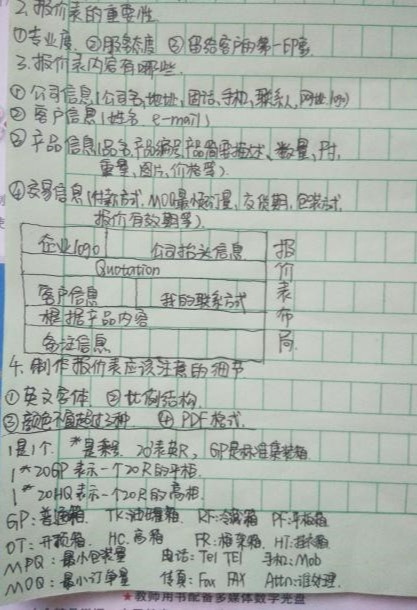 2.报价表的重要性
①专业度 ②服务态度 ③留给客户的第一印象
3.报价表内容有哪些
①公司信息(公司名,地址,电话,手机,联系人,网址,logo)
②客户信息(姓名,e-mail)
③产品信息(品名,产品编号,产品简要描述、数量,尺寸,
重量,图片,价格等)
④交易信息(付款方式,MOQ最小订量,交货期,包装方式,
报价有效期等)
企业logo 公司抬头信息
Quotation
客户信息 我的联系方式
根据产品内容
备注信息
报价表布局
4.制作报价表应该注意的细节
①英文字体 ②比例结构
③颜色不宜超过三种 ④PDF格式
1是1个 *是乘号 20表英R, GP是标准集装箱
1*20GP表示一个20R的平柜
1*20HQ表示一个20R的高柜
GP:普通箱 TK:油罐箱 RF:冷藏箱 PF:平板箱
OT:开顶箱 HC:高箱 FR:框架箱 HT:挂衣箱
MPQ:最小包装量 电话:Tel TEl 手机:Mob
MOQ:最小订单量 传真:Fax FAX Attn:谁处理
★教师用书配备多媒体数字光盘